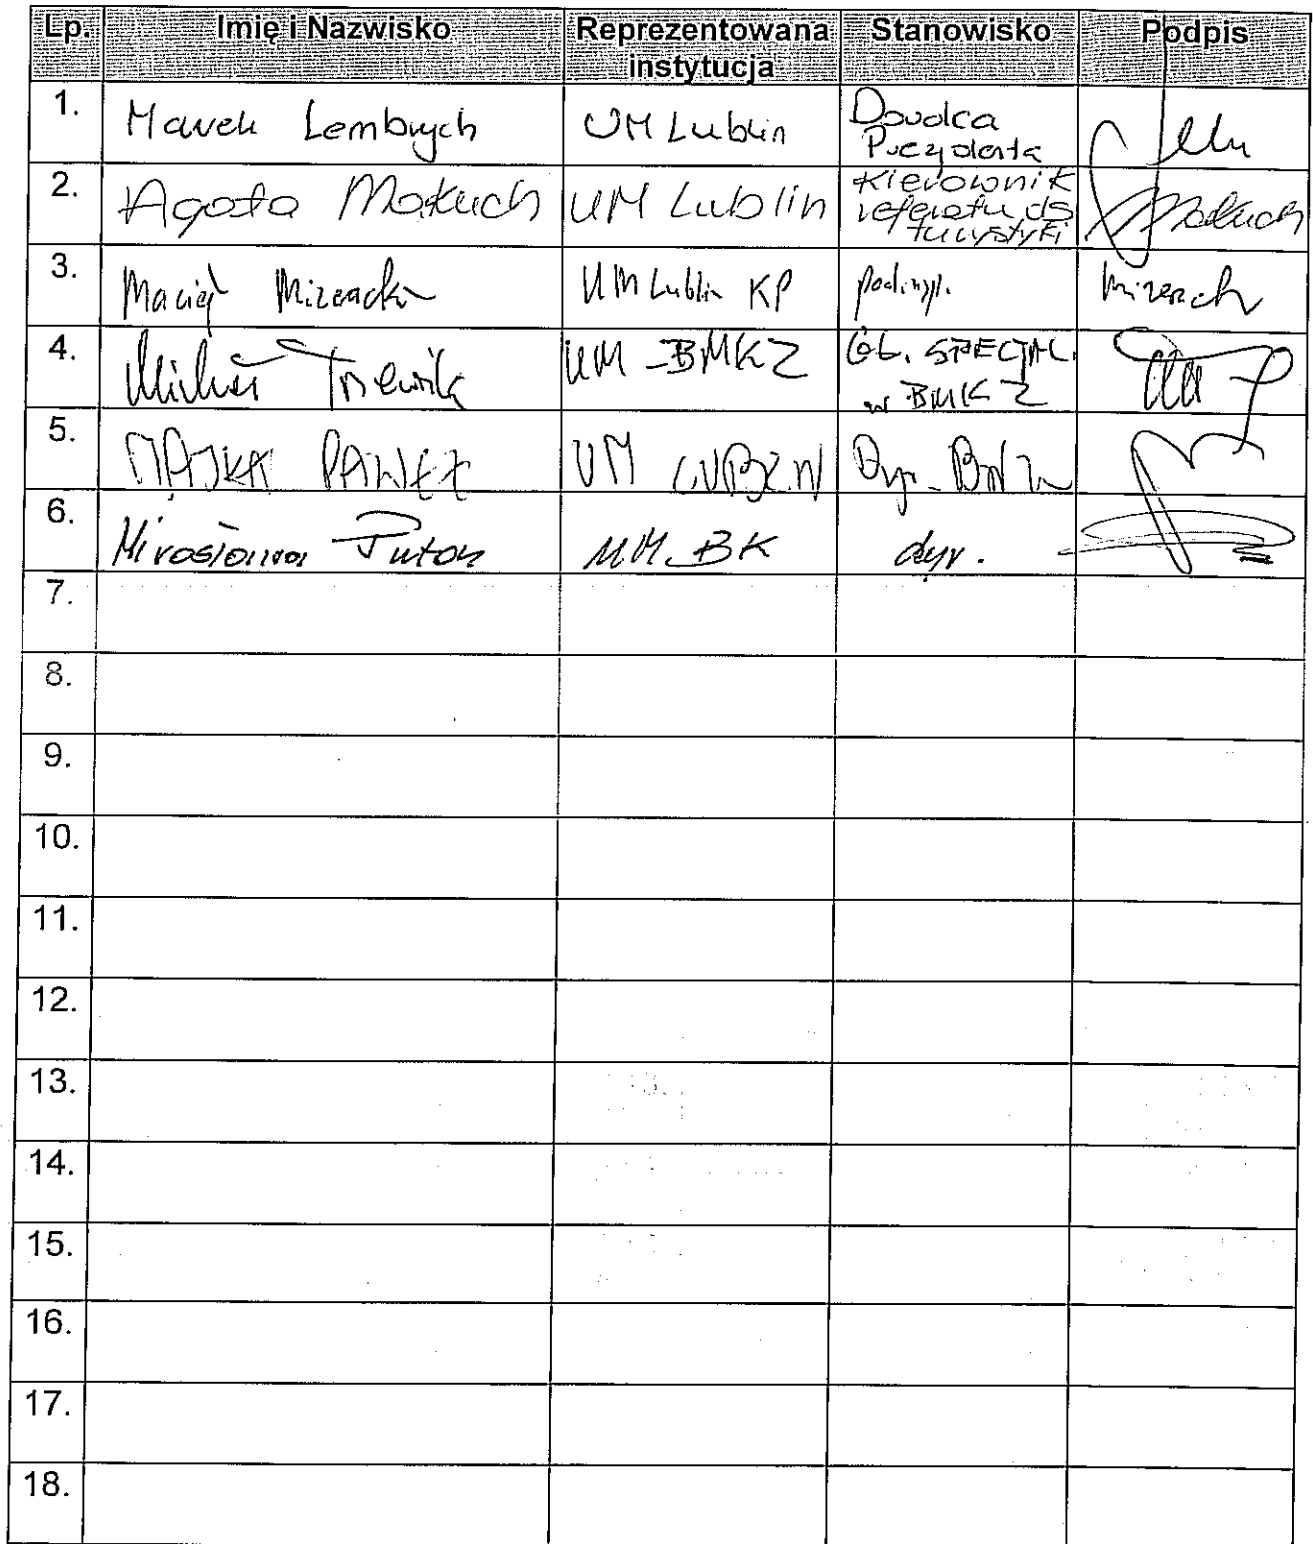 Lp. Imię i Nazwisko Reprezentowana instytucja Stanowisko Podpis
1. Marek Lembrych UM Lublin Doradca Prezydenta
2. Agata Makuch UM Lublin Kierownik referatu ds turystyki Makuch
3. Maciej UM Lublin KP podinsp.
4. Michał Trzewik UM - BMKZ GŁ. SPECJAL. w BMKZ
5. MAJKA PAWEŁ UM LUBLIN Dyr.
6. Mirosława Puton UM BK dyr.
7.
8.
9.
10.
11.
12.
13.
14.
15.
16.
17.
18.